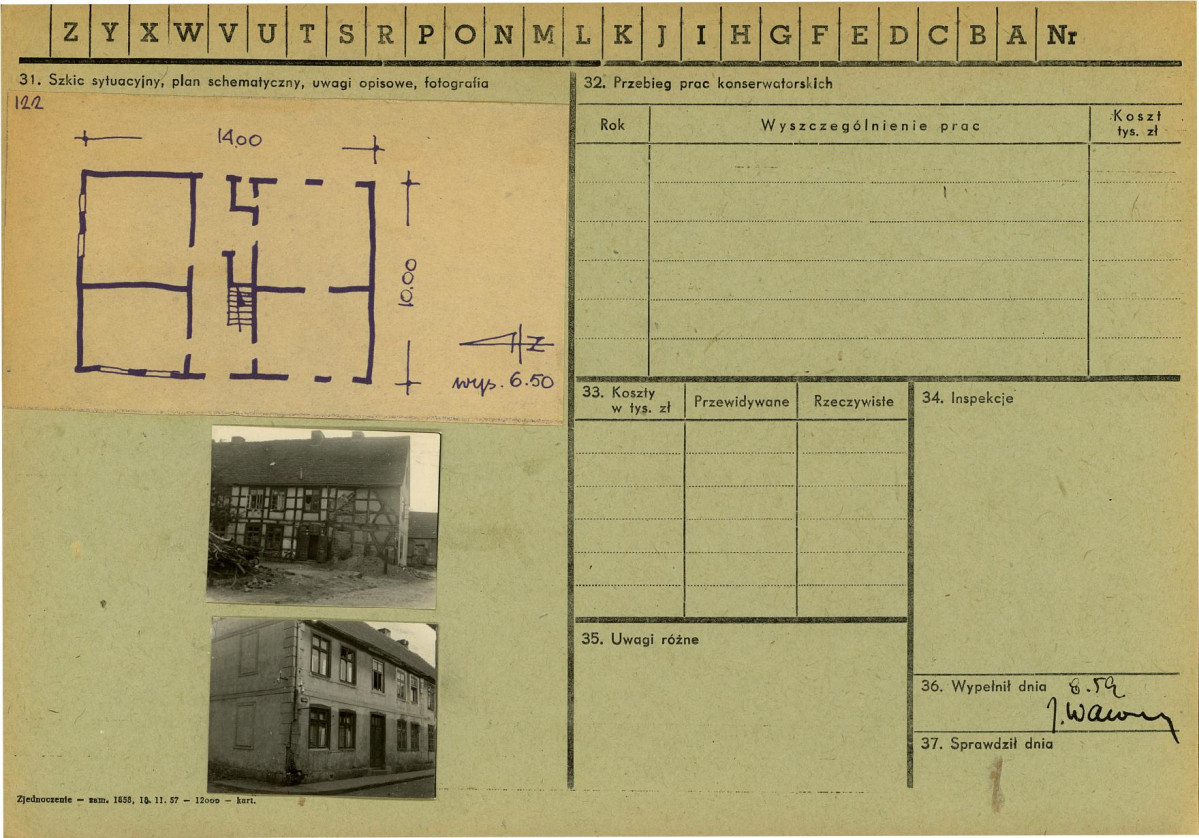 Z Y X W V U T S R P O N M L K J I H G F E D C B A Nr
31. Szkic sytuacyjny, plan schematyczny, uwagi opisowe, fotografia
122
14.00
10.00
Z
wys. 6.50
Zjednoczenie — zam. 1858, 16. 11. 57 — 12000 — kart.
32. Przebieg prac konserwatorskich
Rok
Wyszczególnienie prac
Koszt
tys. zł
33. Koszty
w tys. zł
Przewidywane
Rzeczywiste
34. Inspekcje
35. Uwagi różne
36. Wypełnił dnia
37. Sprawdził dnia